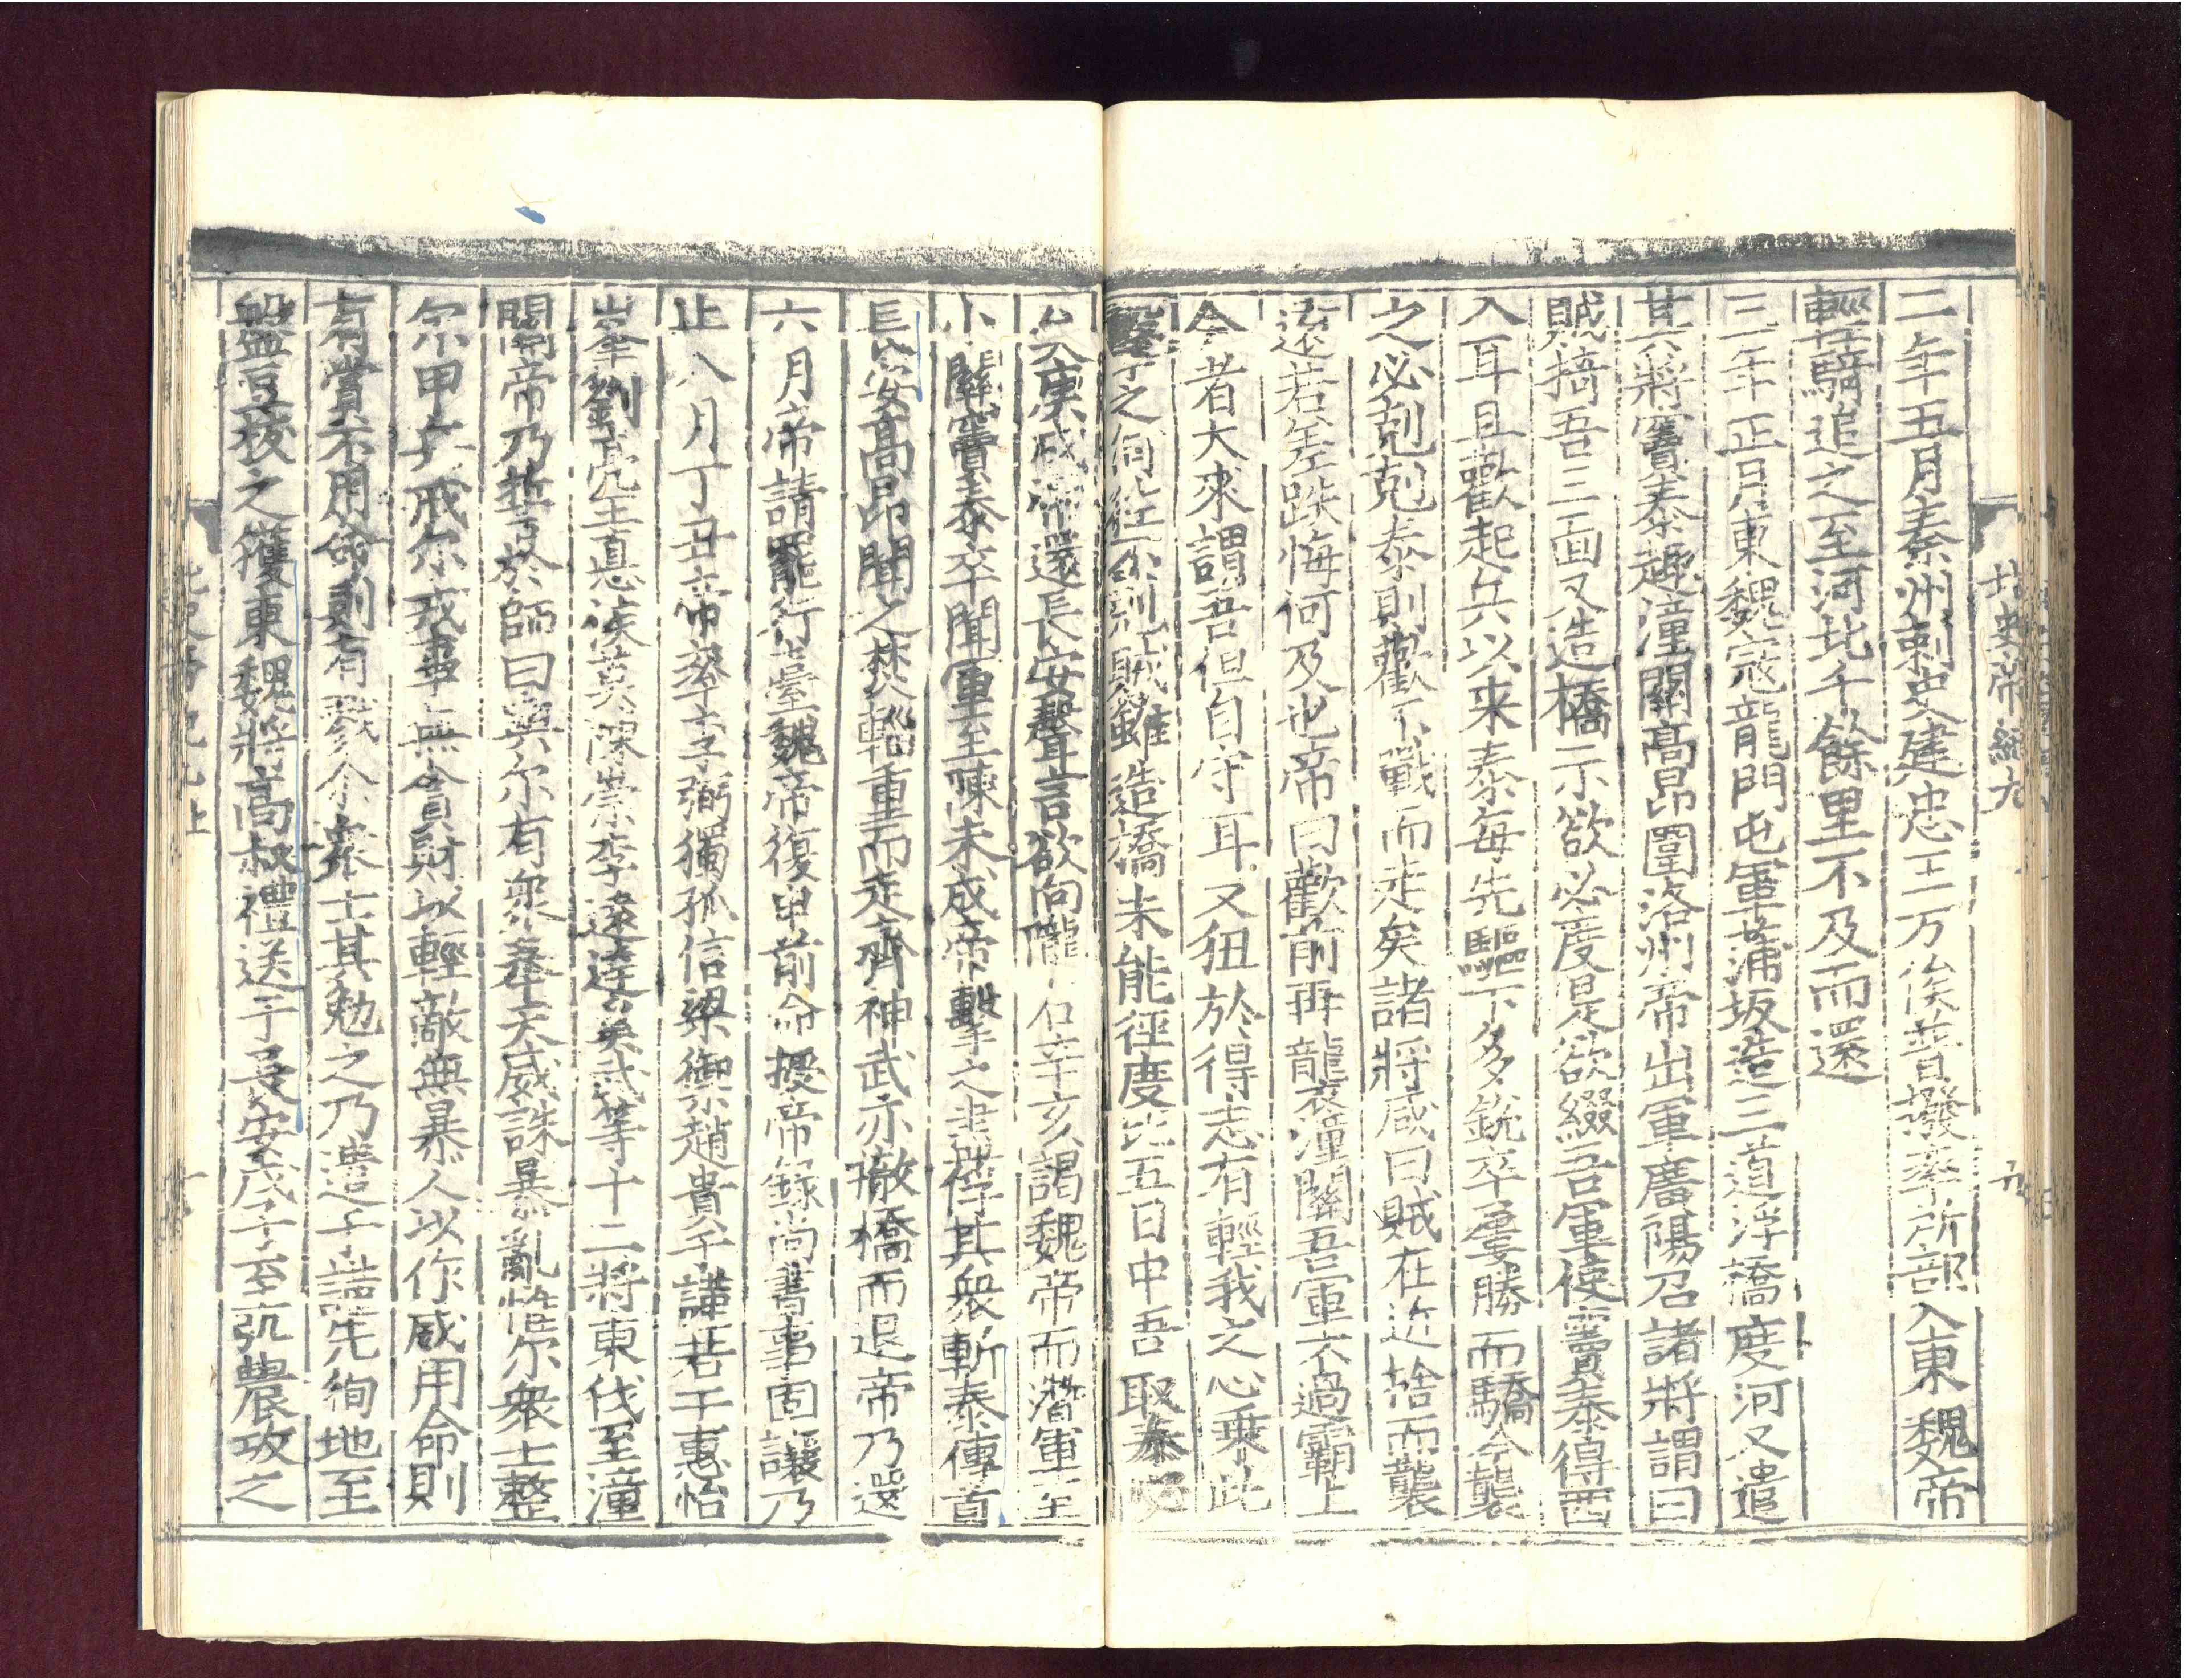 北史帝紀九
九
二年五月秦州刺史建忠王万俟普撥率所部入東魏帝
輕騎追之至河北千餘里不及而還
三年正月東魏寇龍門屯軍蒲坂造三道浮橋度河又遣
其將竇泰趣潼關高昂圍洛州帝出軍廣陽召諸將謂曰
賊掎吾三面又造橋示欲必度是欲綴吾軍使竇泰得西
入耳且歡起兵以来泰每先驅下多銳卒屢勝而驕今襲
之必剋剋泰則歡不戰而走矣諸將咸曰賊在近捨而襲
遠若差跌悔何及也帝曰歡前再襲潼關吾軍不過霸上
今者大來謂吾但自守耳又狃於得志有輕我之心乗此
擊之何往不剋賊雖造橋未能徑度比五日中吾取泰必
矣庚戌帝還長安聲言欲向隴右辛亥謁魏帝而潛軍至
小關竇泰卒聞軍至陳未成帝擊之盡俘其衆斬泰傳首
長安高昂聞之焚輜重而走齊神武亦撤橋而退帝乃還
六月帝請罷行臺魏帝復申前命授帝錄尚書事固讓乃
止八月丁丑帝率李弼獨孤信梁禦趙貴于謹若干惠怡
峯劉亮王悳侯莫陳崇李遠達奚武等十二將東伐至潼
關帝乃誓於師曰與尓有衆奉天威誅暴亂惟尓衆士整
尓甲兵戒尓戎事無貪財以輕敵無暴人以作威用命則
有賞不用命則有戮尓衆士其勉之乃遣于謹先徇地至
盤豆拔之獲東魏將高叔禮送于長安戊子至弘農攻之